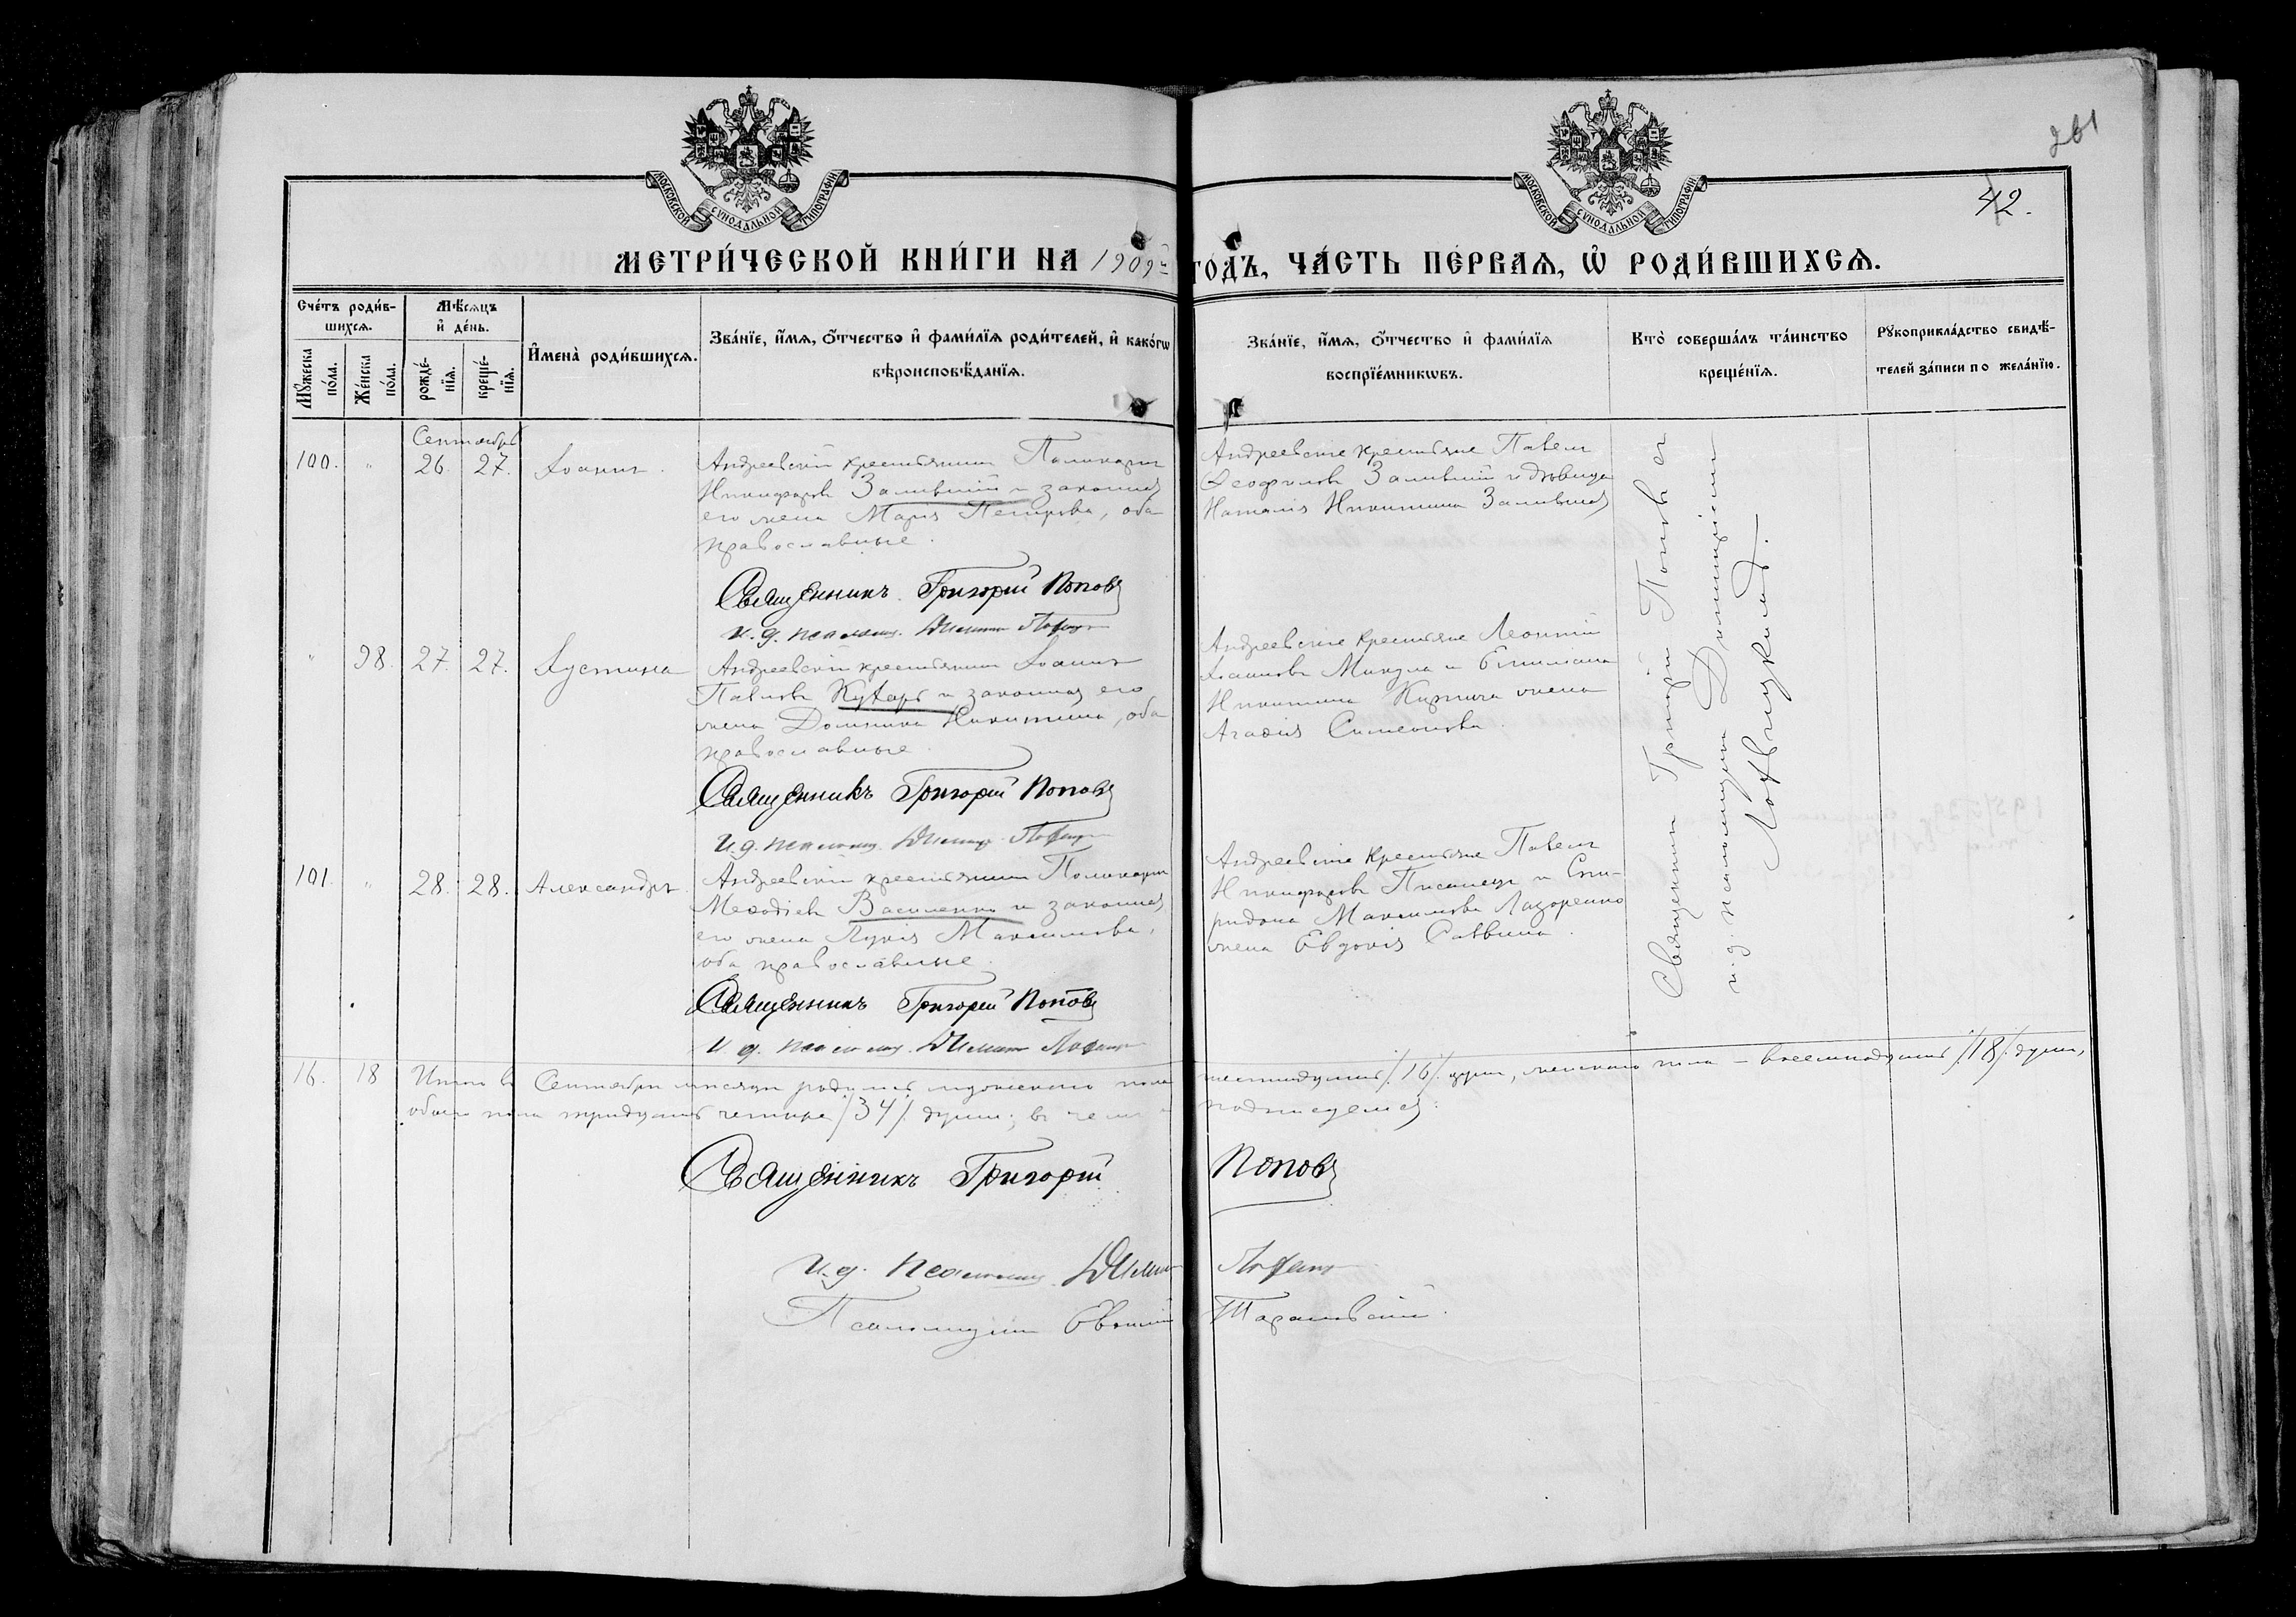 261
42.
МОСКОВСКОЙ СѴНОДАЛЬНОЙ ТИПОГРАФІИ
МОСКОВСКОЙ СѴНОДАЛЬНОЙ ТИПОГРАФІИ
МЕТРИ́ЧЕСКОЙ КНИ́ГИ НА 1909й ГО́ДЪ, ЧА́СТЬ ПЕ́РВАѦ, Ѡ҆ РОДИ́ВШИХСѦ.
Сче́тъ роди́в-
шихсѧ.
Мꙋ́жеска по́ла.
Же́нска по́ла.
Мѣ́сѧцъ
и҆ де́нь.
рожде́-нїѧ.
креще́-нїѧ.
И҆мена̀ роди́вшихсѧ.
Зва́нїе, и҆́мѧ, ѻ҆́тчество и҆ фами́лїѧ роди́телей, и҆ како́гѡ
вѣроисповѣ́данїѧ.
Зва́нїе, и҆́мѧ, ѻ҆́тчество и҆ фами́лїѧ
воспрїе́мникѡвъ.
Кто̀ соверша́лъ та́инство
креще́нїѧ.
Рꙋкоприкла́дство свидѣ́-
телей за́писи по жела́нїю.
Сентябрь
100. " 26. 27. Іоаннъ.
Андреевскій крестьянинъ Поликарпъ
Никифоровъ Залившій и законная
его жена Марія Петрова, оба
православные.
Священникъ Григорій Поповъ
И. д. псаломщ. Димит.
Андреевскіе крестьяне Павелъ
Ѳеофиловъ Залившій и дѣвица
Наталія Никитина Залившая
" 98. 27. 27. Іустина
Андреевскій крестьянинъ Іоаннъ
Павловъ Кухарь и законная его
жена Домника Никитина, оба
православные.
Священникъ Григорій Поповъ
И. д. псаломщ. Димит.
Андреевскіе крестьяне Леонтій
Іоанновъ Микула и
Никитина жена
Агаѳія Симеонова.
101. " 28. 28. Александръ.
Андреевскій крестьянинъ Поликарпъ
Меѳодіевъ Василенко и законная
его жена Лукія Максимова,
оба православные.
Священникъ Григорій Поповъ
И. д. псаломщ. Димит.
Андреевскіе крестьяне Павелъ
Никифоровъ Писанецъ и Спи-
ридона Максимова Лазоренко
жена Евдокія Саввина.
Священникъ Григорій Поповъ съ
и. д. псаломщика Димитріемъ
16. 18 Итого въ Сентябрѣ мѣсяцѣ родилось мужескаго пола шестнадцать /16/ душъ, женскаго пола – восемнадцать /18/ душъ,
обоего пола тридцать четыре /34/ души; въ чемъ и подписуемся:
Священникъ Григорій Поповъ
И. д. псаломщ. Димит.
Псаломщикъ Тарановскій.